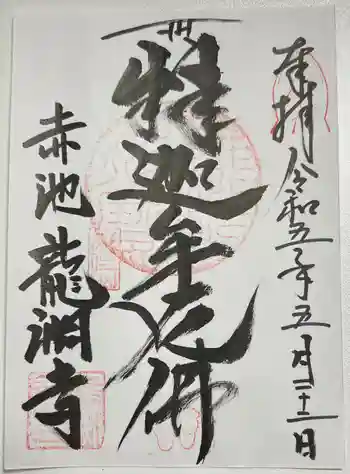 奉拝 令和五年五月二十一日
釋迦牟尼佛
赤池 龍淵寺